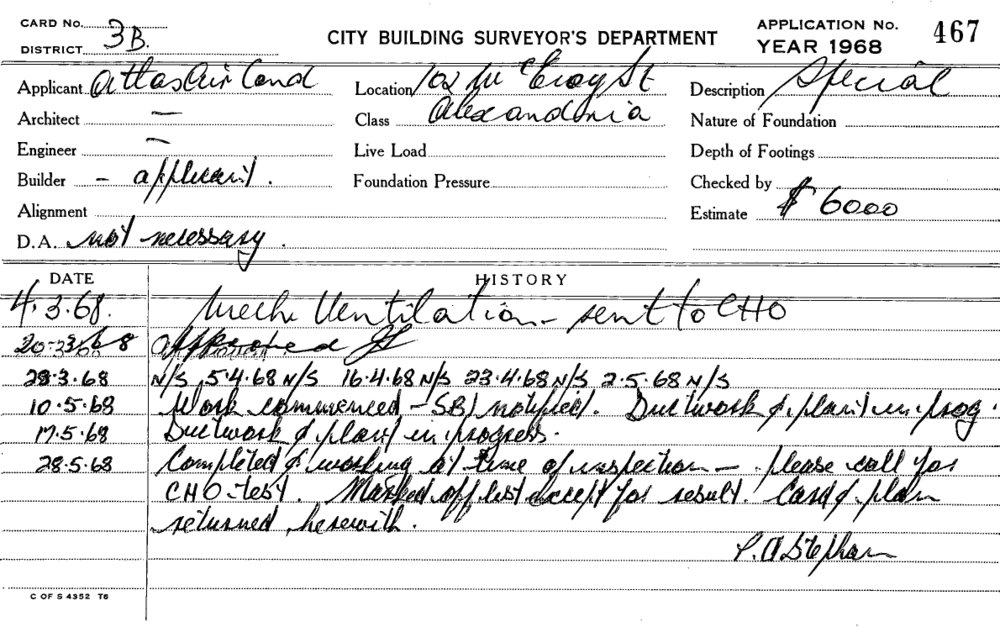 CARD No.
DISTRICT 3B.
CITY BUILDING SURVEYOR'S DEPARTMENT
APPLICATION No. 467
YEAR 1968
Applicant Atlas Air Cond
Location 102 McEvoy St
Description Special
Architect —
Class Alexandria
Nature of Foundation
Engineer —
Live Load
Depth of Footings
Builder - applicant.
Foundation Pressure
Checked by
Alignment
Estimate $ 6000
D.A. not necessary.
DATE HISTORY
4.3.68. Mech Ventilation - sent to CHO
20.3.68 Approved
28.3.68 N/S 5.4.68 N/S 16.4.68 N/S 23.4.68 N/S 2.5.68 N/S
10.5.68 Work commenced - SBI notified. Ductwork & plant in prog.
17.5.68 Ductwork & plant in progress.
28.5.68 Completed & working at time of inspection - please call for
CHO test. Marked off list except for result. Card & plan
returned herewith.
P. A Stephan
C OF S 4352 T6